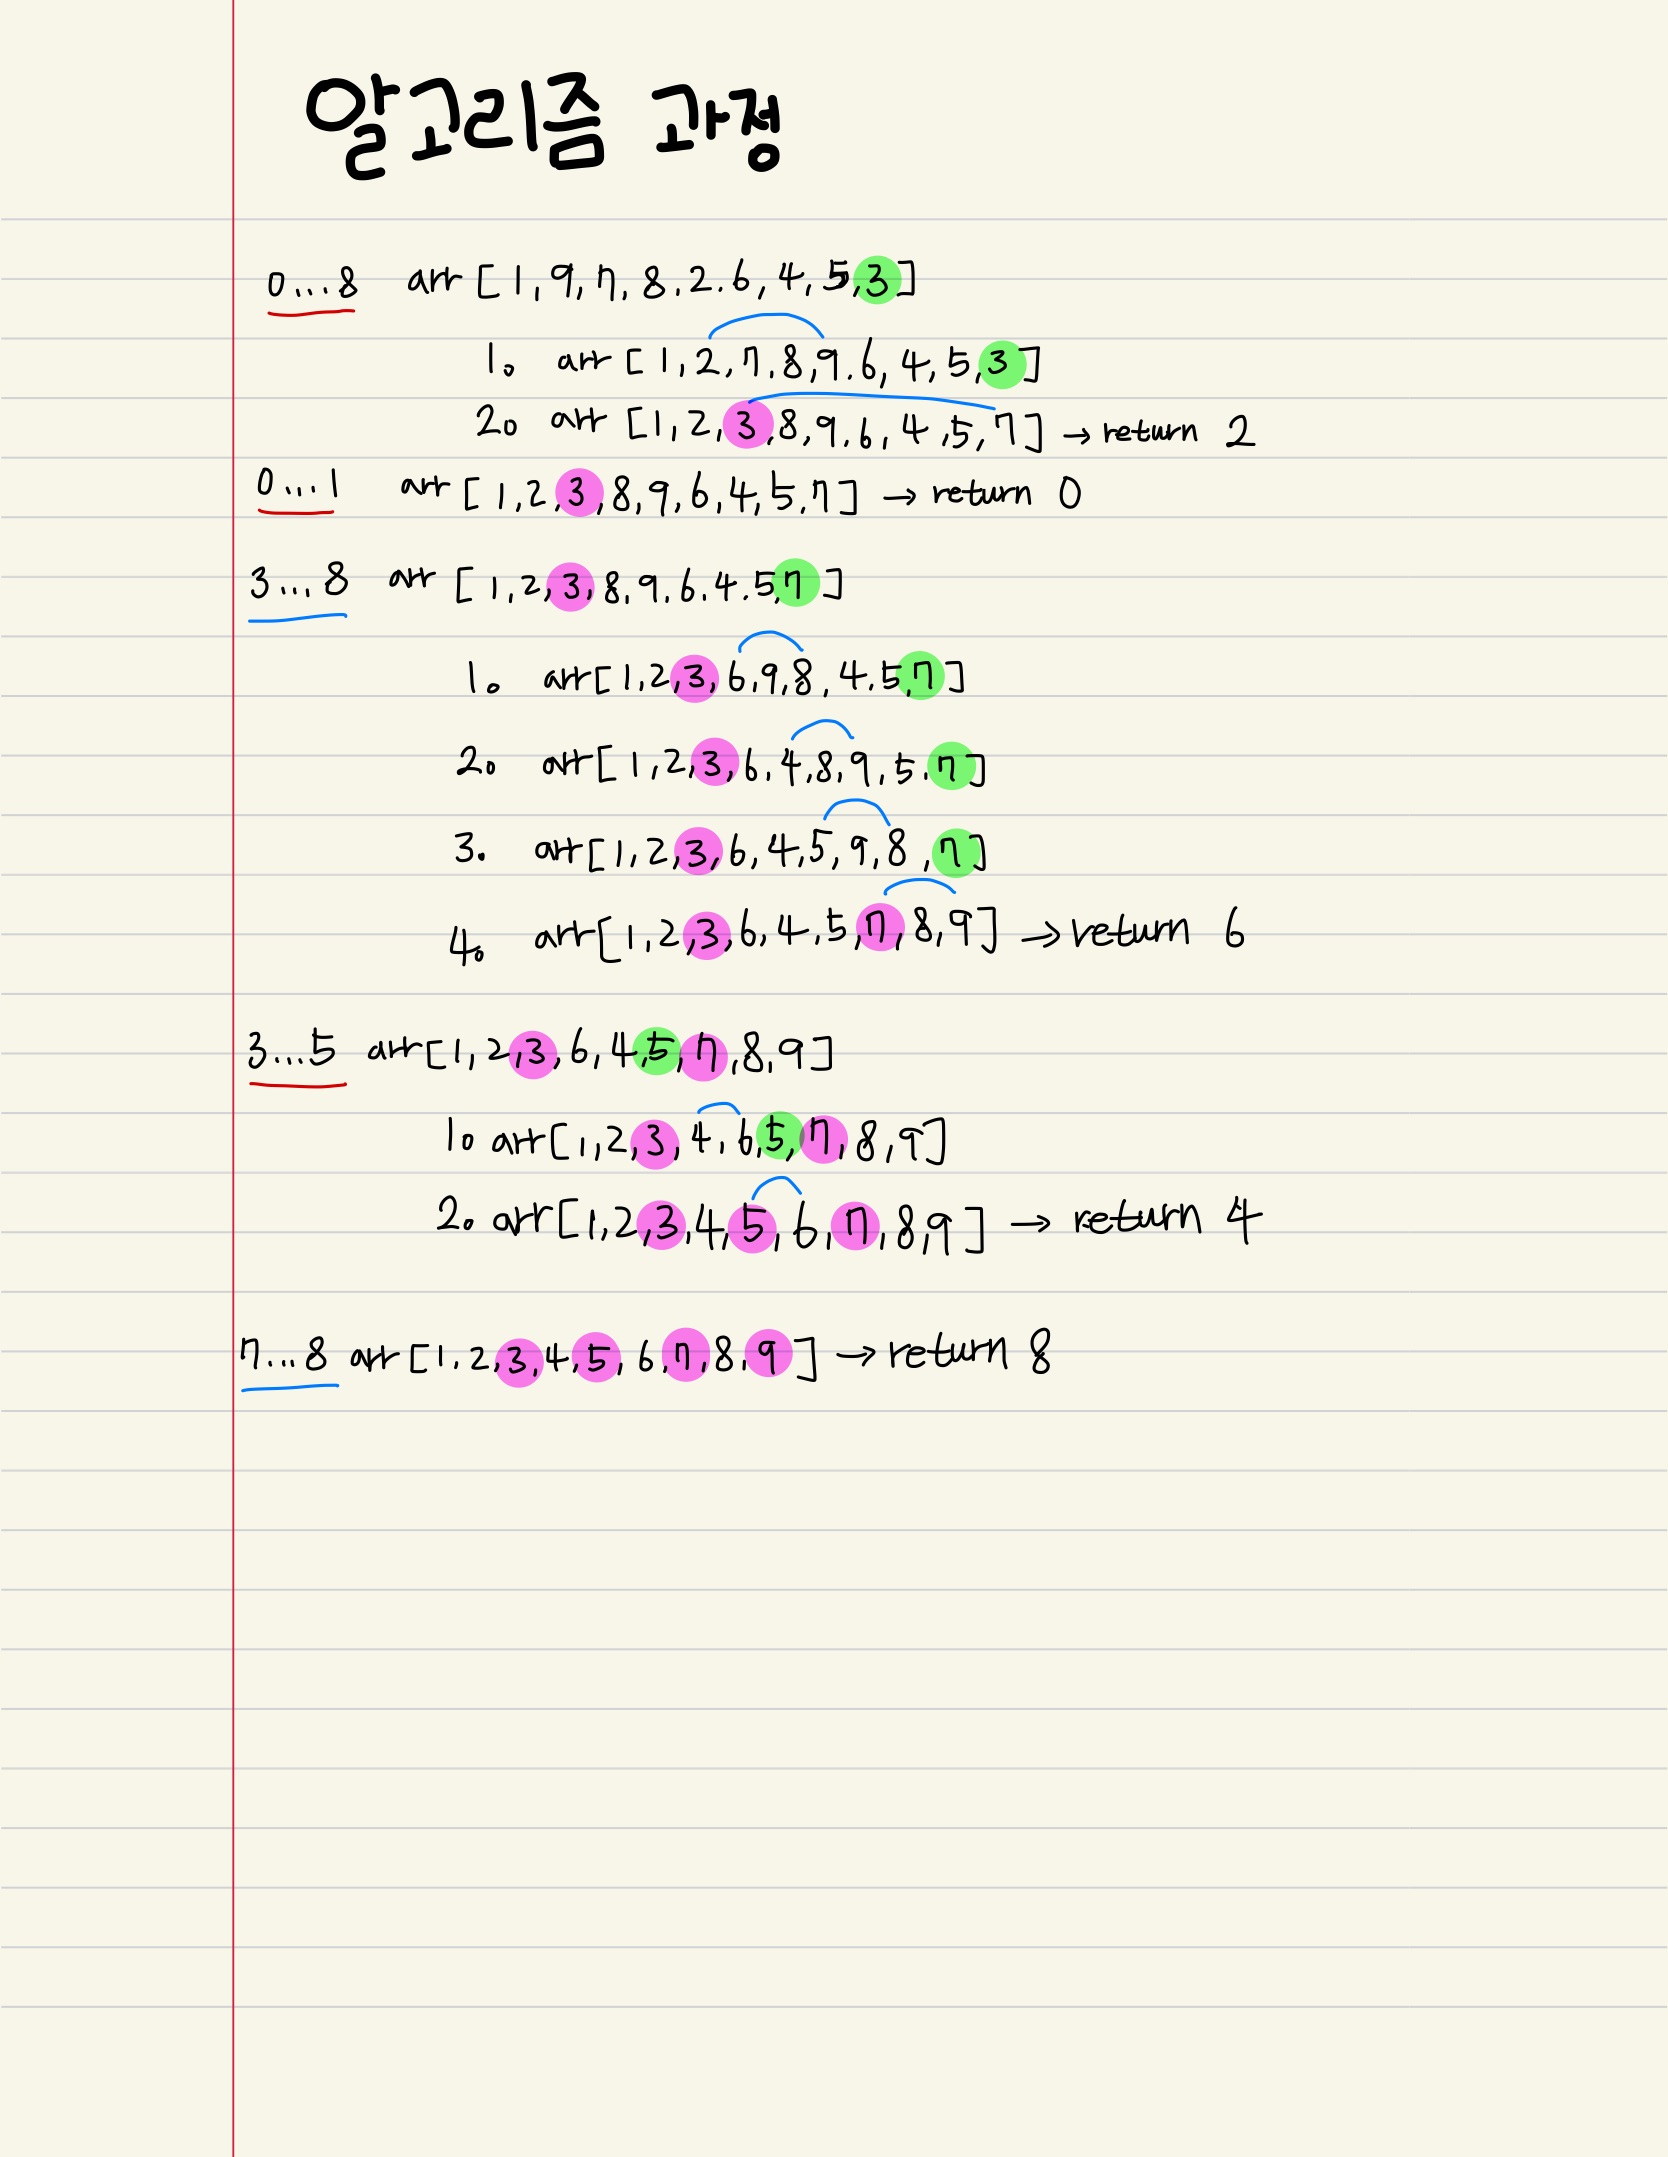 알고리즘 과정
0...8 arr [1,9,7,8,2.6,4,5,3]
1. arr [1,2,7,8,9.6,4,5,3]
2. arr [1,2,3,8,9,6,4,5,7] → return 2
0...1 arr [1,2,3,8,9,6,4,5,7] → return 0
3...8 arr [1,2,3,8,9,6.4.5,7]
1. arr[1,2,3,6,9,8,4.5,7]
2. arr[1,2,3,6,4,8,9,5.7]
3. arr[1,2,3,6,4,5,9,8,7]
4. arr[1,2,3,6,4,5,7,8,9] → return 6
3...5 arr[1,2,3,6,4,5,7,8,9]
1. arr[1,2,3,4,6,5,7,8,9]
2. arr[1,2,3,4,5,6,7,8,9] → return 4
7...8 arr[1,2,3,4,5,6,7,8,9] → return 8